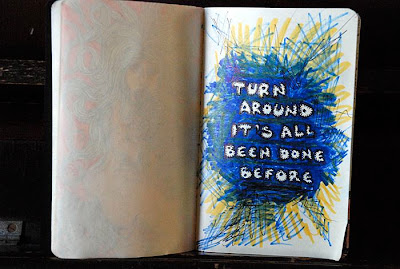 TURN
AROUND
IT'S ALL
BEEN DONE
BEFORE